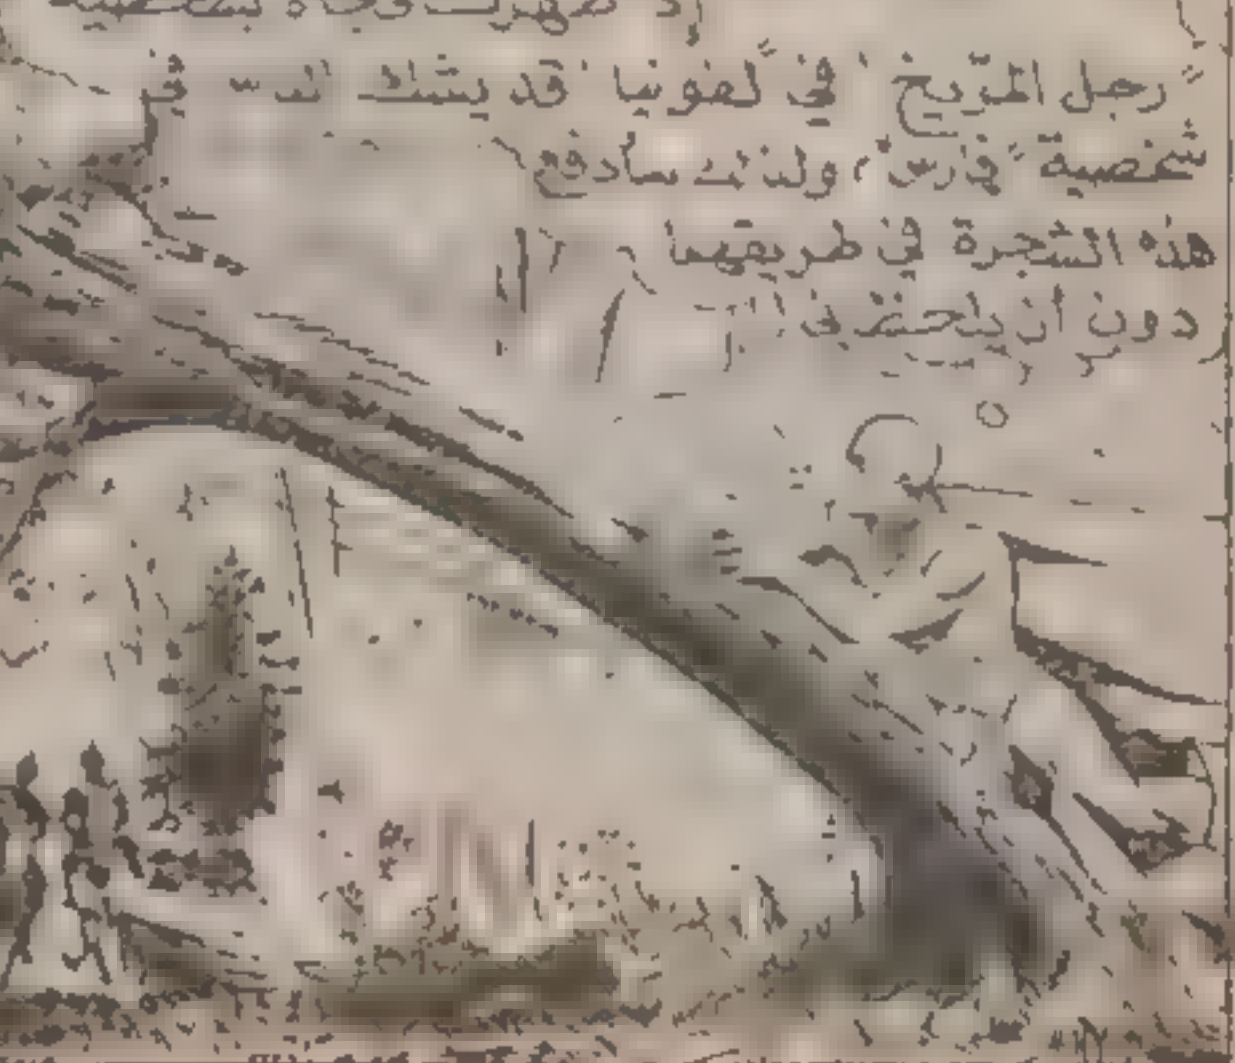 رجل المرّيخ" في لغونيا قد يشك أنه في
شخصية "فارس" ولذلك سأدفع
هذه الشجرة في طريقهما
دون أن يلاحظني!!